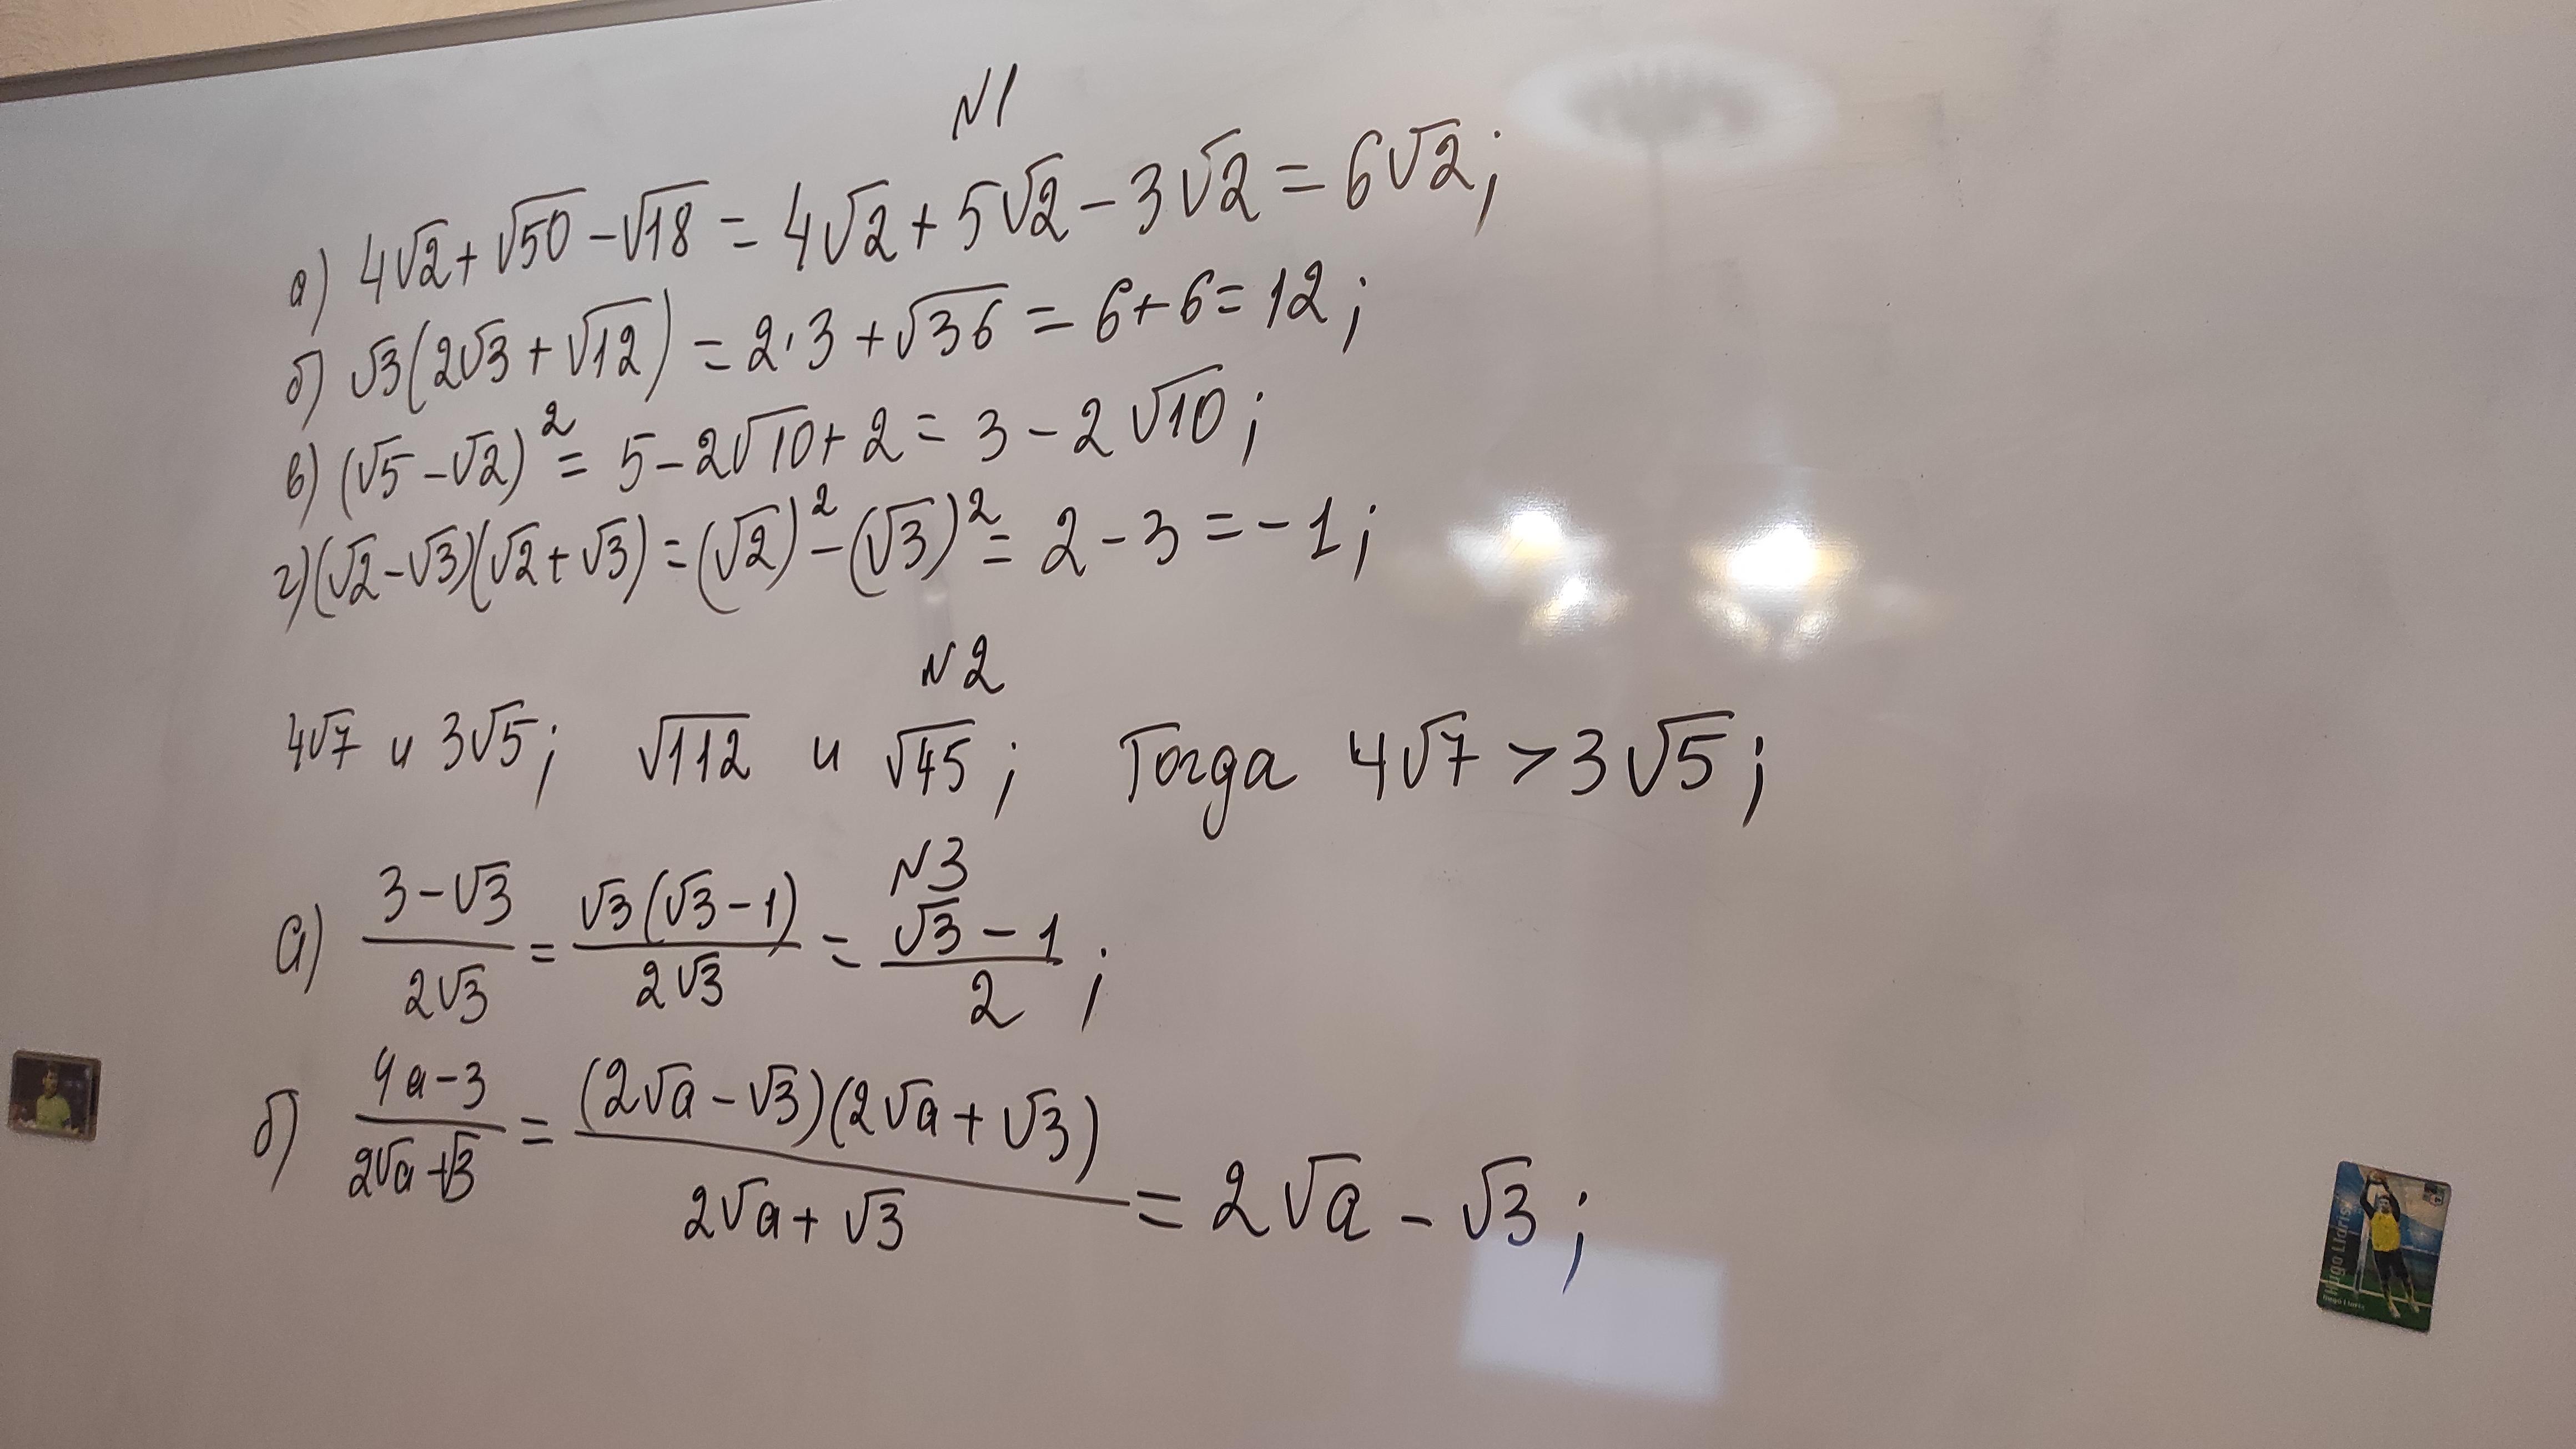 N1
а) 4√2 + √50 - √18 = 4√2 + 5√2 - 3√2 = 6√2;
б) √3(2√3 + √12) = 2·3 + √36 = 6 + 6 = 12;
в) (√5 - √2)² = 5 - 2√10 + 2 = 3 - 2√10;
г) (√2 - √3)(√2 + √3) = (√2)² - (√3)² = 2 - 3 = -1;
N2
4√7 и 3√5; √112 и √45; Тогда 4√7 > 3√5;
N3
а) (3 - √3)/(2√3) = (√3(√3 - 1))/(2√3) = (√3 - 1)/2;
б) (4a - 3)/(2√a + √3) = ((2√a - √3)(2√a + √3))/(2√a + √3) = 2√a - √3;
Hugo Lloris
Hugo Lloris